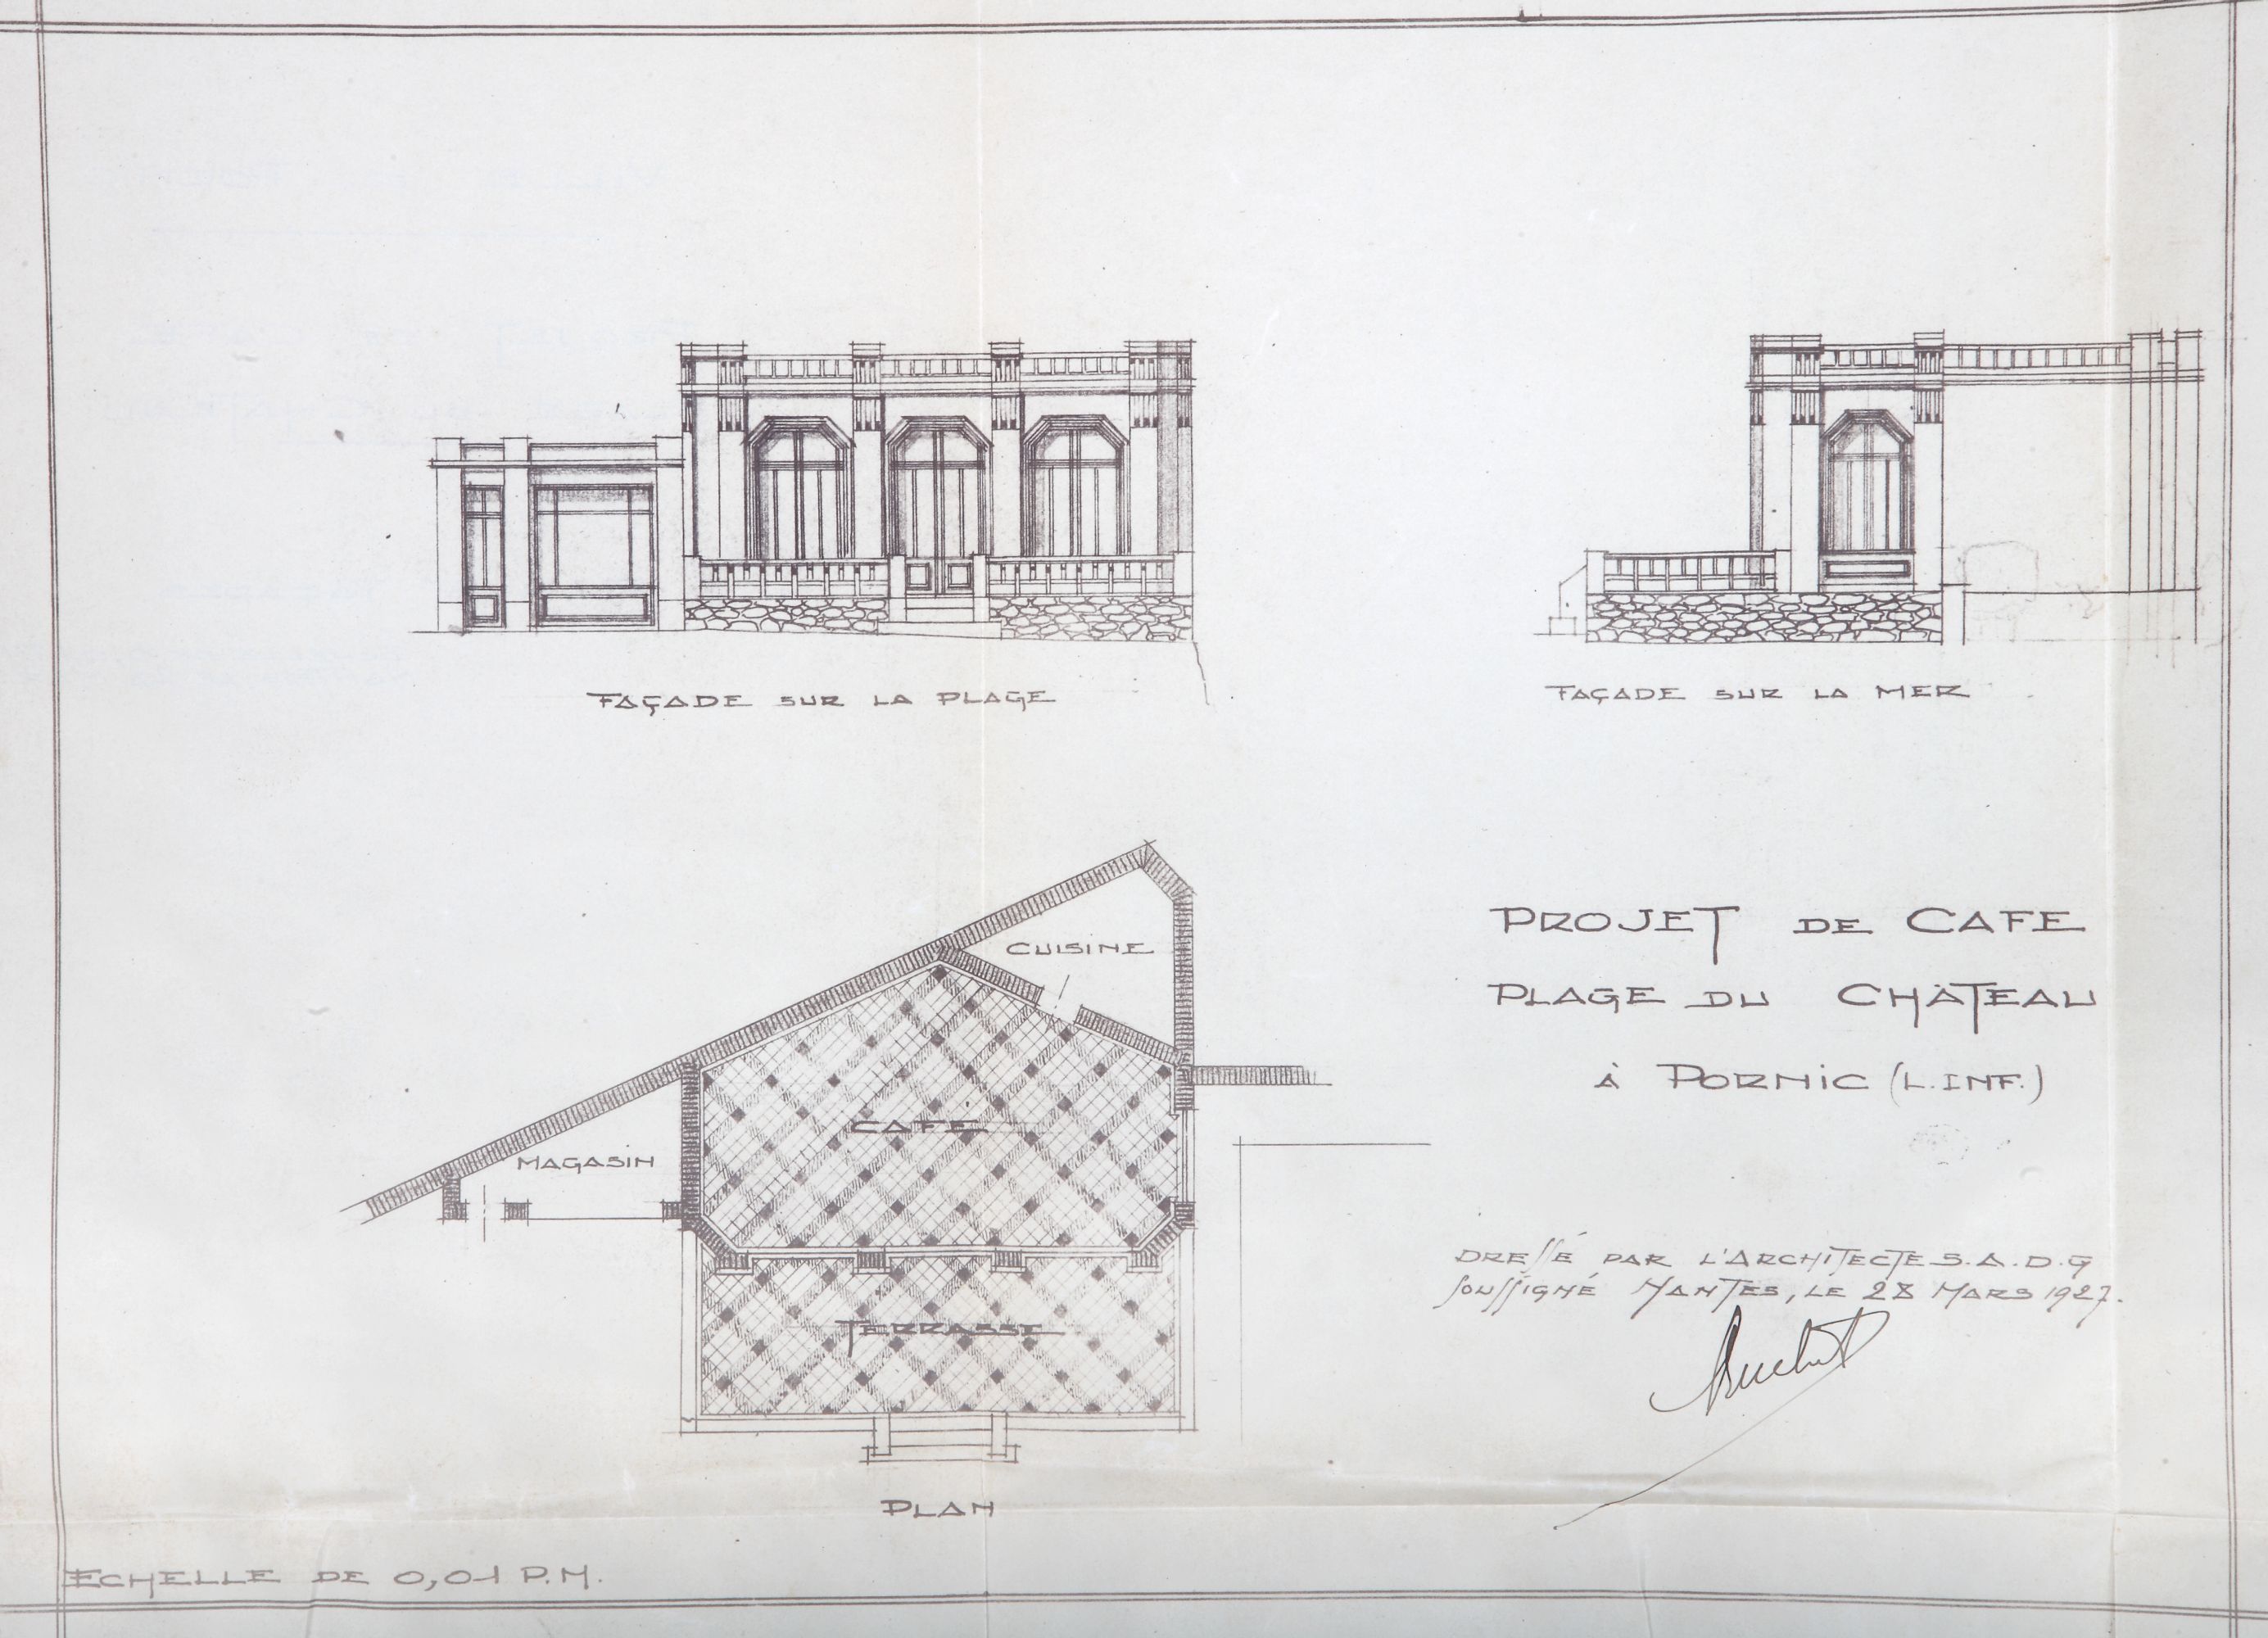 FAÇADE SUR LA PLAGE
FAÇADE SUR LA MER
CUISINE
CAFE
MAGASIN
TERRASSE
PLAN
PROJET DE CAFE
PLAGE DU CHÂTEAU
À PORNIC (L.INF.)
DRESSÉ PAR L'ARCHITECTE S.A.D.G
SOUSSIGNÉ NANTES, LE 28 MARS 1927.
ECHELLE DE 0,01 P.M.